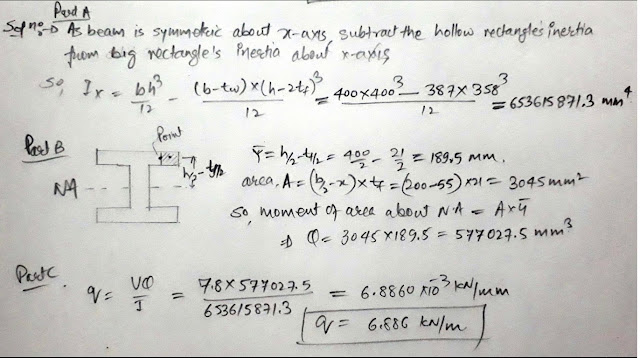 Part A
Solno:-D As beam is symmetric about x-axis, subtract the hollow rectangle's inertia
from big rectangle's inertia about x-axis
so, Ix = bh³/12 - (b-tw)×(h-2tf)³/12 = 400×400³ - 387×358³/12 = 653615871.3 mm⁴
Part B
Point
h/2 - tf/2
NA
ȳ = h/2 - tf/2 = 400/2 - 21/2 = 189.5 mm.
area, A = (b/2 - x)×tf = (200-55)×21 = 3045 mm²
so, moment of area about NA = A×ȳ
⇒ Q = 3045×189.5 = 577027.5 mm³
Part C.
q = VQ/I = 7.8×577027.5/653615871.3 = 6.8860×10⁻³ kN/mm
q = 6.886 kN/m